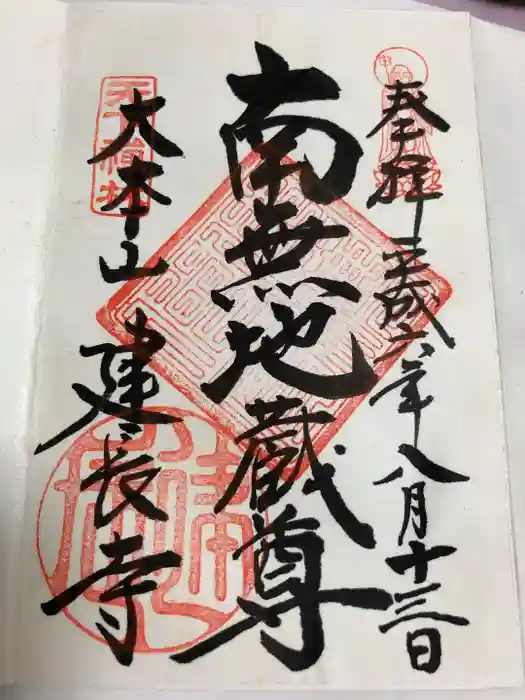 奉拝 平成六年八月十三日
南無地蔵尊
大本山 建長寺
天下禅林